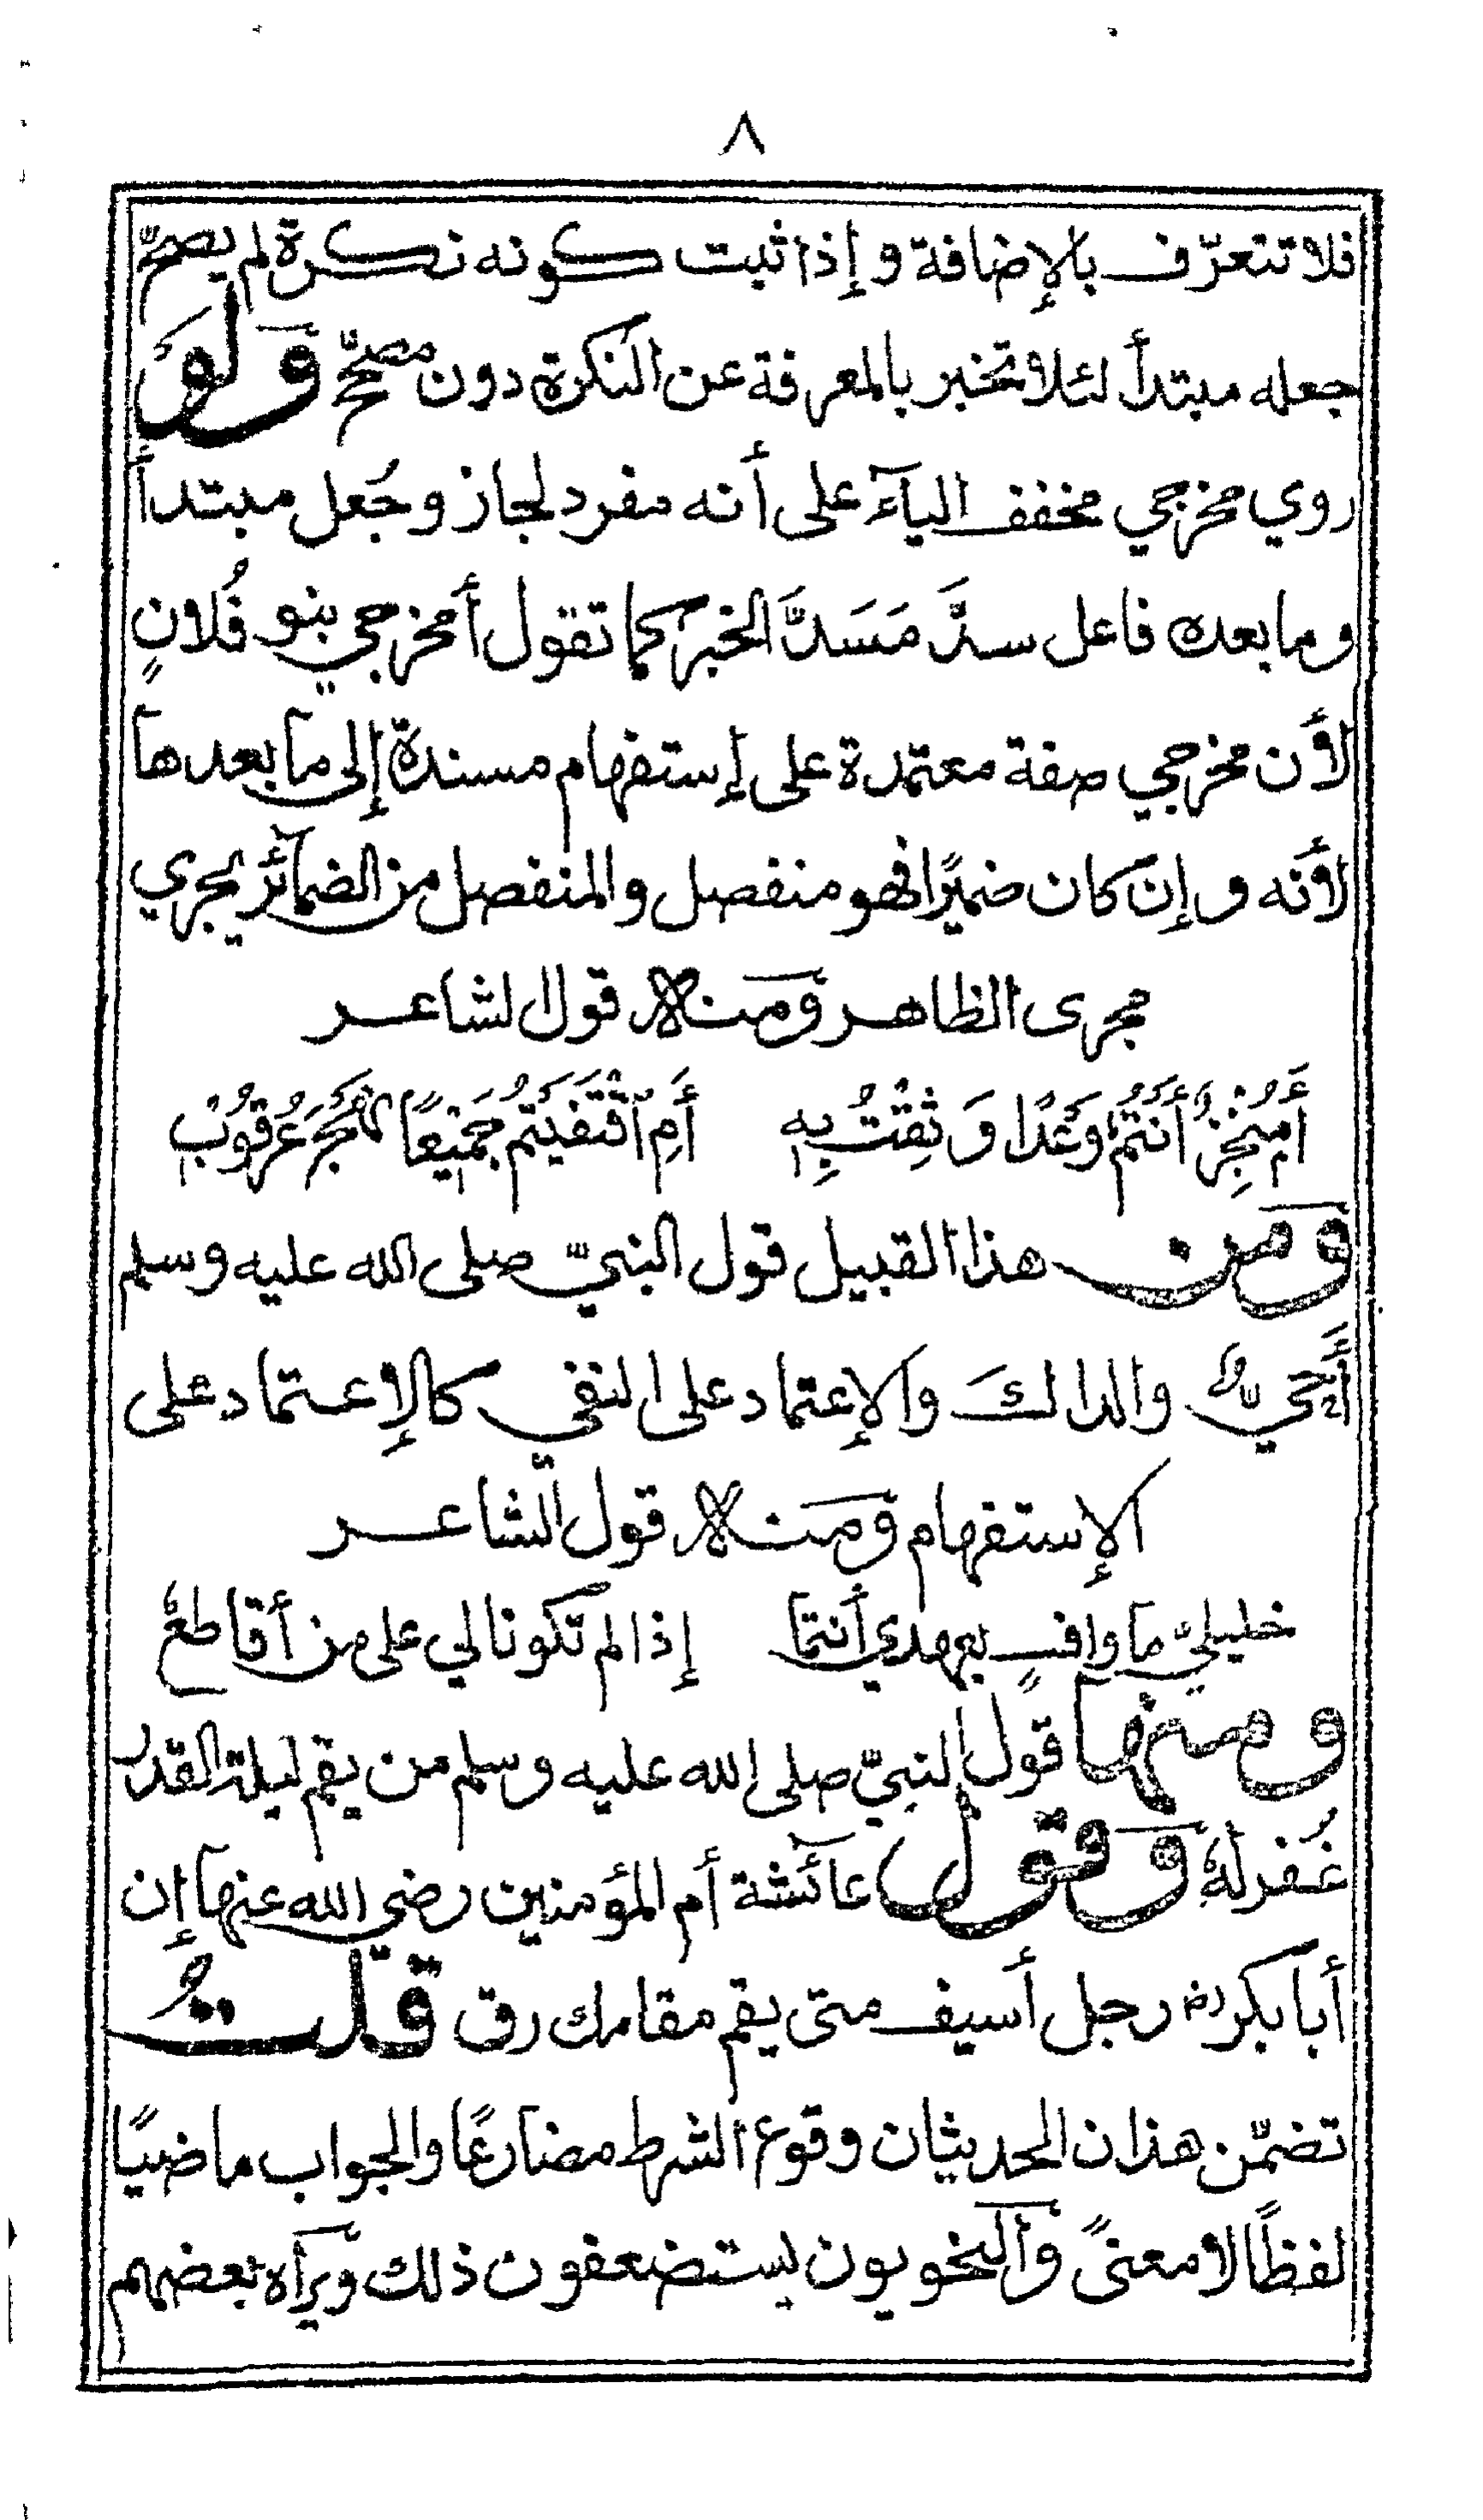 ٨
فلا تتعرّف بالإضافة و إذا ثبت كونه نكرة لم يصحّ
جعله مبتدأ لئلا تخبر بالمعرفة عن النكرة دون مصحّح وَلَو
روي مخرجي مخفف اليآء على أنه مفرد لجاز وجُعل مبتدأ
وما بعده فاعل سدَّ مَسَدَّ الخبر كما تقول أمخرجي بنو فُلانٍ
لأن مخرجي صفة معتمدة على إستفهام مسندة إلى ما بعدها
لأنه و إن كان ضميرًا فهو منفصل والمنفصل من الضمآئر يجري
مجرى الظاهر ومنه قول الشاعر
أَمُنْجِزٌ أَنْتُمُ وَعْدًا وَثِقْتُ بِهِ أَمِ اقْتَفَيْتُمْ جَمِيْعًا نَهْجَ عُرْقُوْبِ
وَمن هذا القبيل قول النبيّ صلى الله عليه وسلم
أَحَيٌّ والداكَ والإعتماد على النفي كالإعتماد على
الإستفهام ومنه قول الشاعر
خليليّ ما وافٍ بعهدي أنتما إذا لم تكونا لي على من أقاطعُ
ومنها قول النبيّ صلى الله عليه وسلم من يقم ليلة القدر
غُفر له وقول عائشة أم المؤمنين رضي الله عنها إن
أبا بكر رض رجل أسيف متى يقم مقامك رق قلتُ
تضمّن هذان الحديثان وقوع الشرط مضارعًا والجواب ماضيًا
لفظًا لا معنىً والنحويون يستضعفون ذلك ويرآه بعضهم